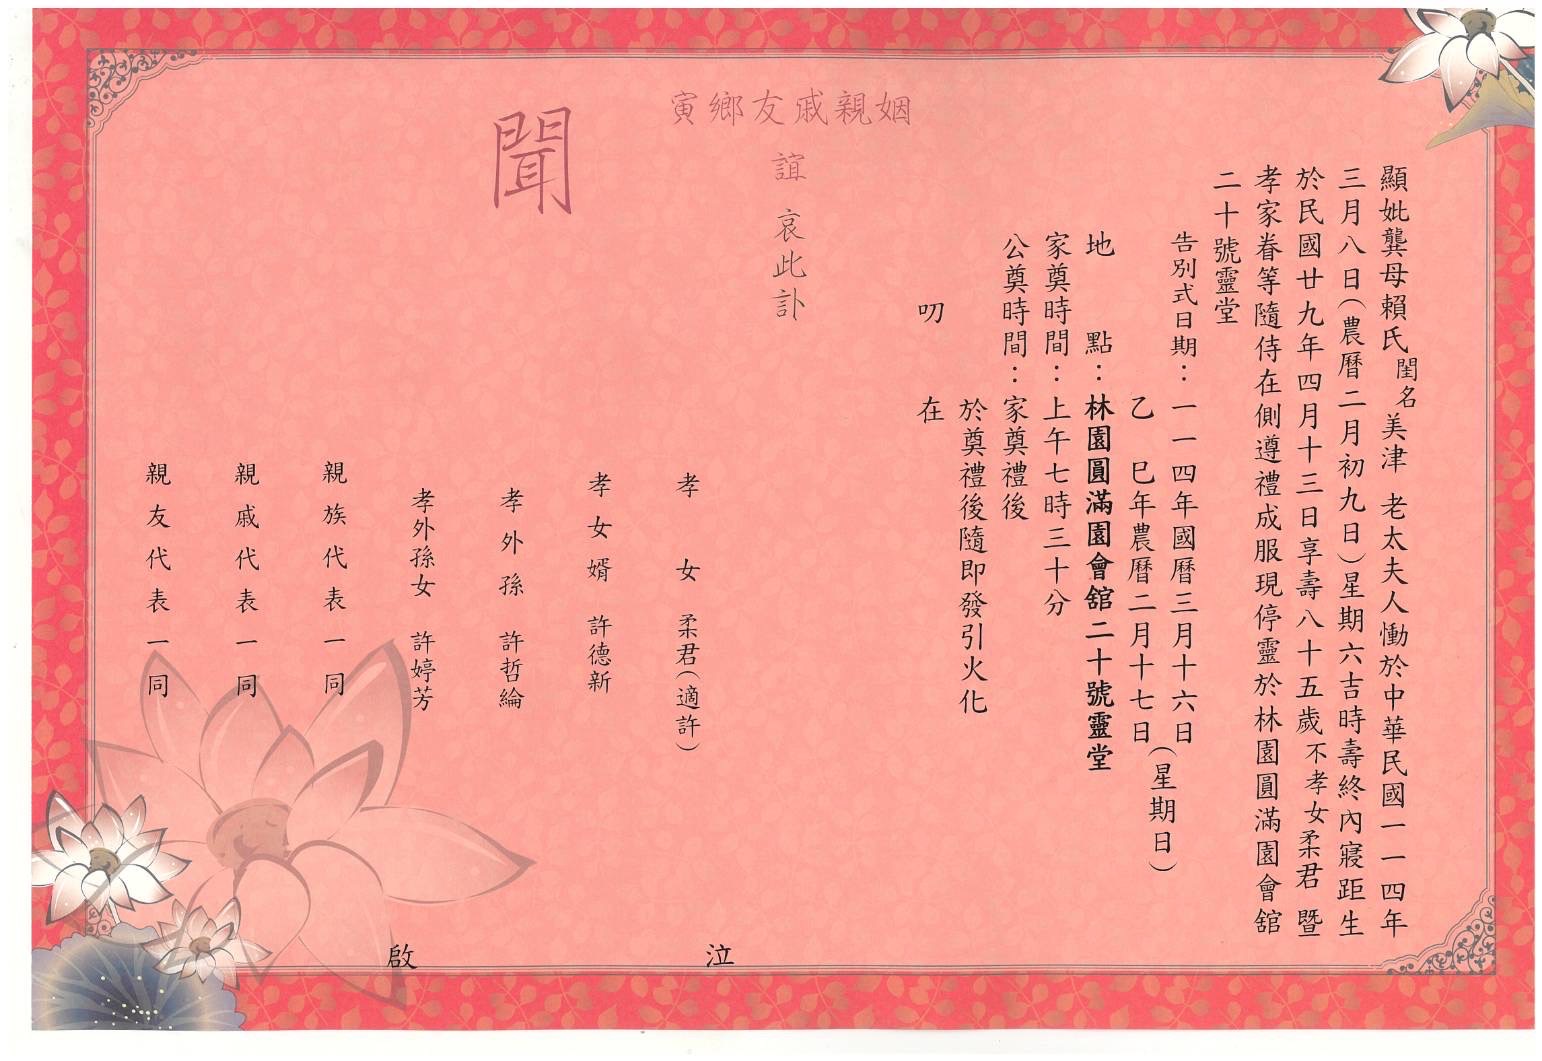 顯妣龔母賴氏閨名美津 老太夫人慟於中華民國一一四年
三月八日(農曆二月初九日)星期六吉時壽終內寢距生
於民國廿九年四月十三日享壽八十五歲不孝女柔君 暨
孝家眷等隨侍在側遵禮成服現停靈於林園圓滿園會舘
二十號靈堂
告別式日期：一一四年國曆三月十六日
乙 巳年農曆二月十七日
(星期日)
地 點：林園圓滿園會舘二十號靈堂
家奠時間：上午七時三十分
公奠時間：家奠禮後
於奠禮後隨即發引火化
叨 在
姻親戚友鄉寅
誼 哀此訃
聞
孝 女 柔君(適許)
泣
孝女婿 許德新
孝外孫 許哲綸
孝外孫女 許婷芳
啟
親族代表一同
親戚代表一同
親友代表一同